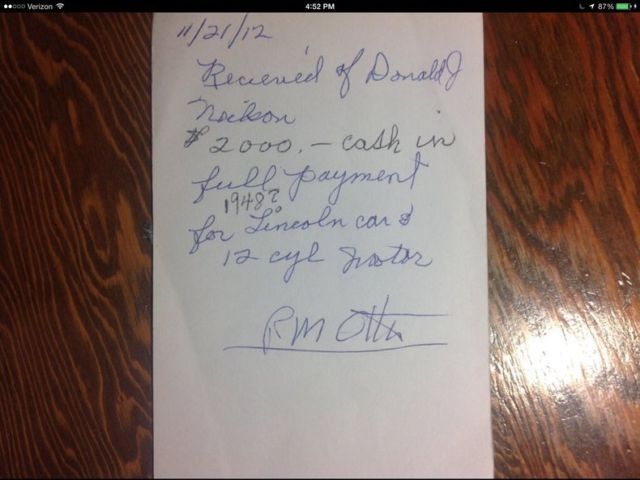 Verizon 4:52 PM 87%
11/21/12
Recieved of Donald J
Neilson
$2000.— cash in
full payment
1948?
for Lincoln car &
12 cyl motor
RM Otto